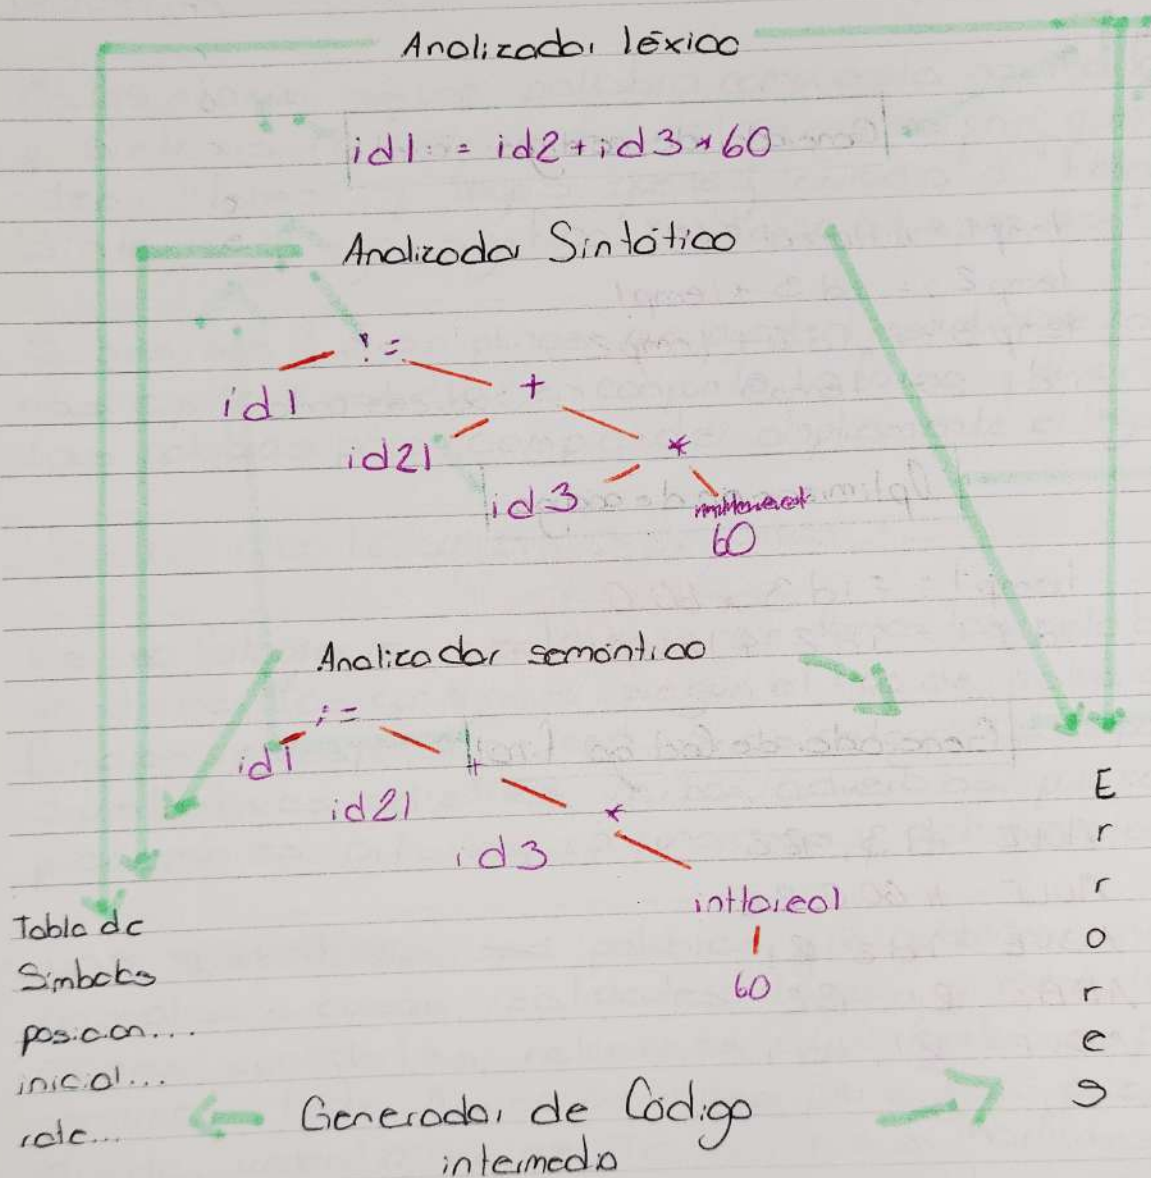 Analizador léxico
id1 := id2 + id3 * 60
Analizador Sintático
:=
id1
+
id21
*
id3
60
Analizador semántico
:=
id1
+
id21
*
id3
inttoreal
60
Errores
Tabla de
Simbolos
posicion...
inicial...
rate...
Generador de Código
intermedio